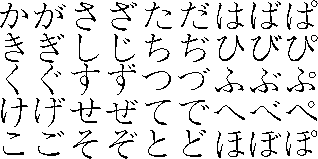 か が さ ざ た だ は ば ぱ
き ぎ し じ ち ぢ ひ び ぴ
く ぐ す ず つ づ ふ ぶ ぷ
け げ せ ぜ て で へ べ ぺ
こ ご そ ぞ と ど ほ ぼ ぽ